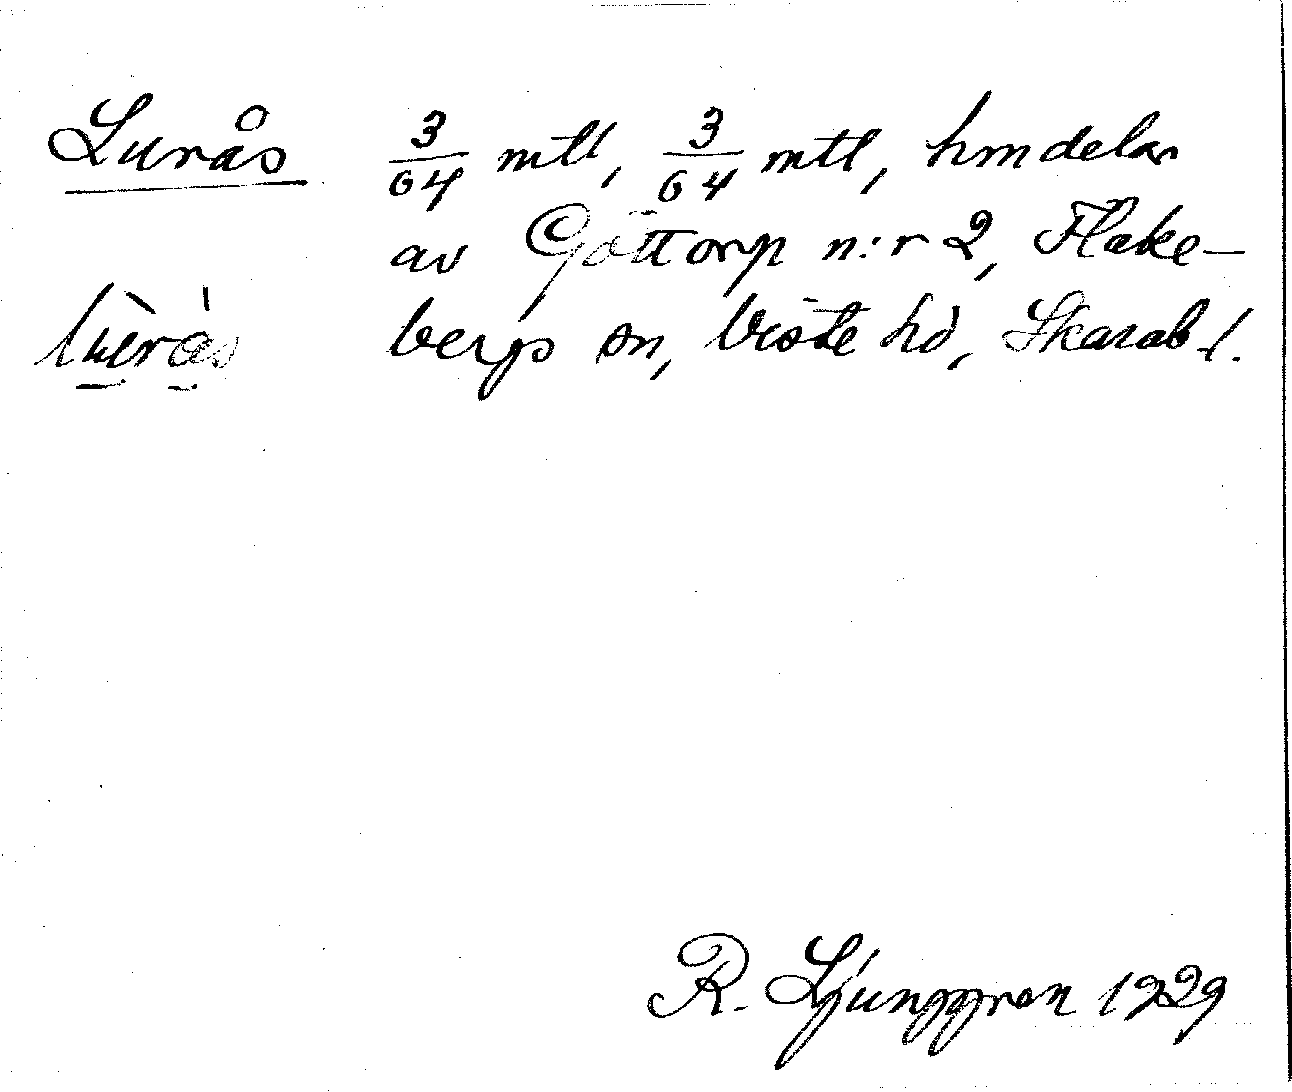 Lurås 3/64 mtl, 3/64 mtl, hmdelar
av Göttorp n:r 2, Flake-
bergs sn, Viste hd, Skarab. l.
lùrás
R. Ljunggren 1929